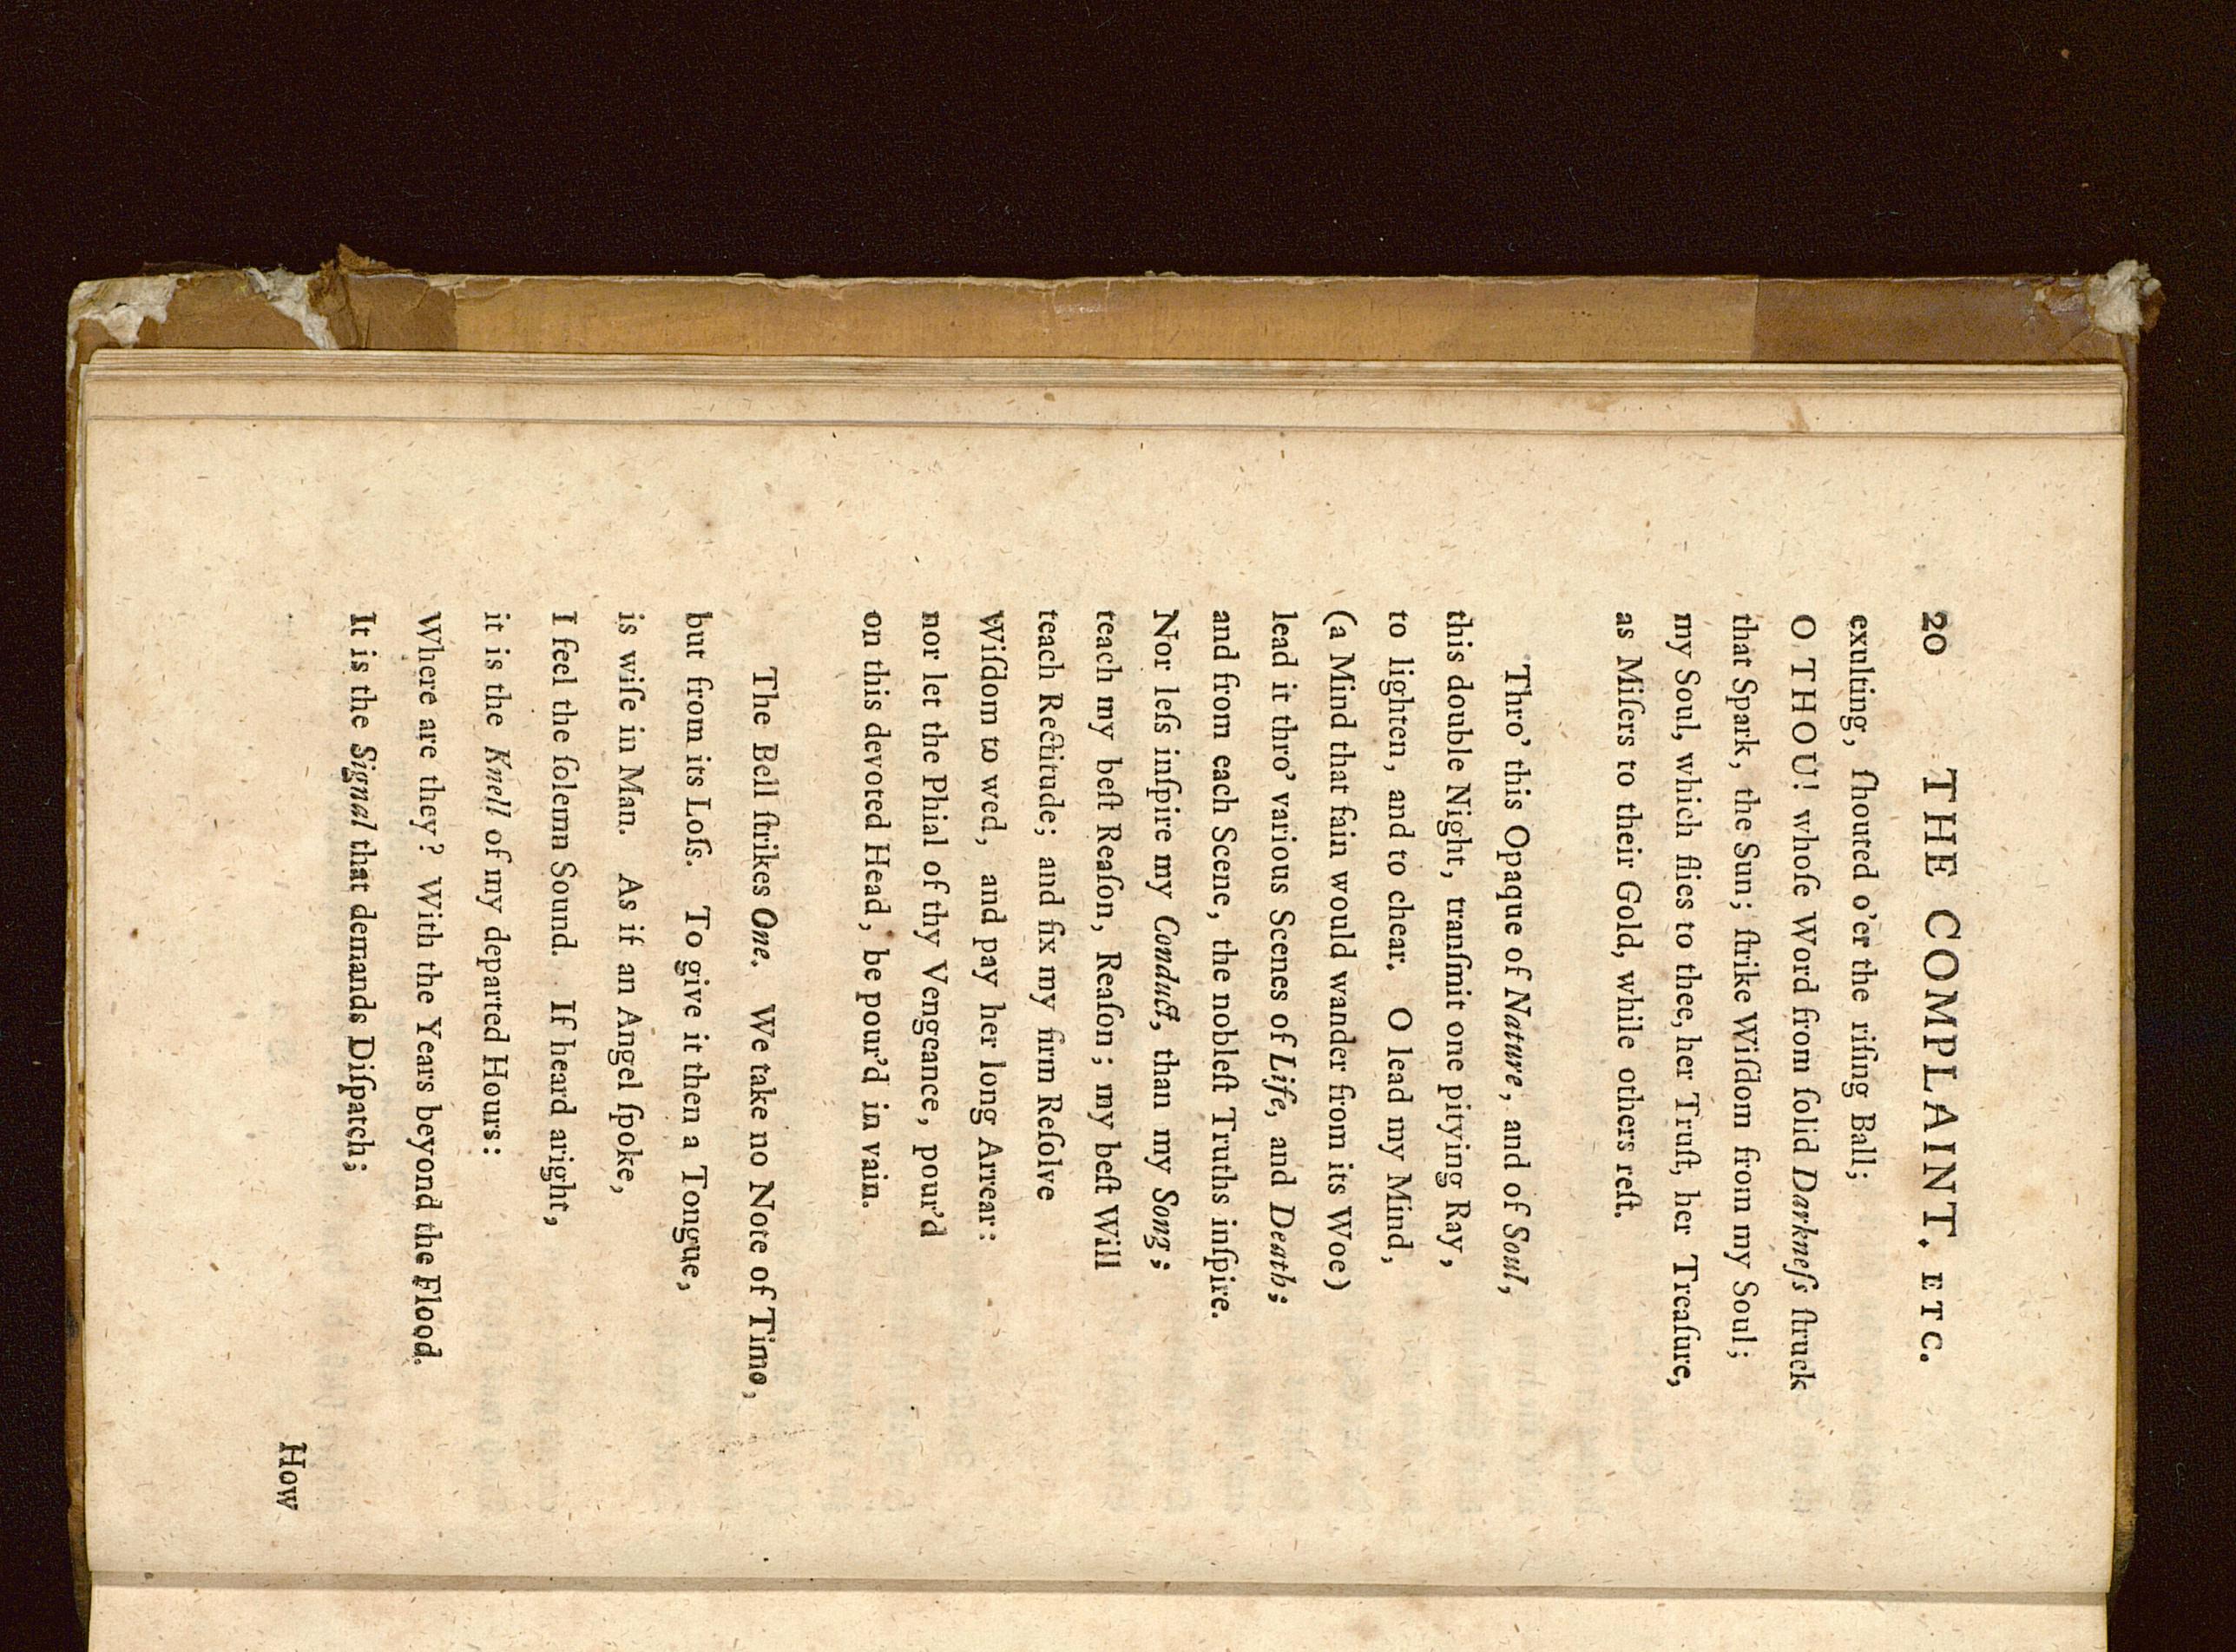 20 THE COMPLAINT. ETC.
exulting, ſhouted o'er the riſing Ball;
O THOU! whoſe Word from ſolid Darkneſs ſtruck
that Spark, the Sun; ſtrike Wiſdom from my Soul;
my Soul, which flies to thee, her Truſt, her Treaſure,
as Miſers to their Gold, while others reſt.
Thro' this Opaque of Nature, and of Soul,
this double Night, tranſmit one pitying Ray,
to lighten, and to chear. O lead my Mind,
(a Mind that fain would wander from its Woe)
lead it thro' various Scenes of Life, and Death;
and from each Scene, the nobleſt Truths inſpire.
Nor leſs inſpire my Conduct, than my Song;
teach my beſt Reaſon, Reaſon; my beſt Will
teach Rectitude; and fix my firm Reſolve
Wiſdom to wed, and pay her long Arrear:
nor let the Phial of thy Vengeance, pour'd
on this devoted Head, be pour'd in vain.
The Bell ſtrikes One. We take no Note of Time,
but from its Loſs. To give it then a Tongue,
is wiſe in Man. As if an Angel ſpoke,
I feel the ſolemn Sound. If heard aright,
it is the Knell of my departed Hours:
Where are they? With the Years beyond the Flood.
It is the Signal that demands Diſpatch;
How